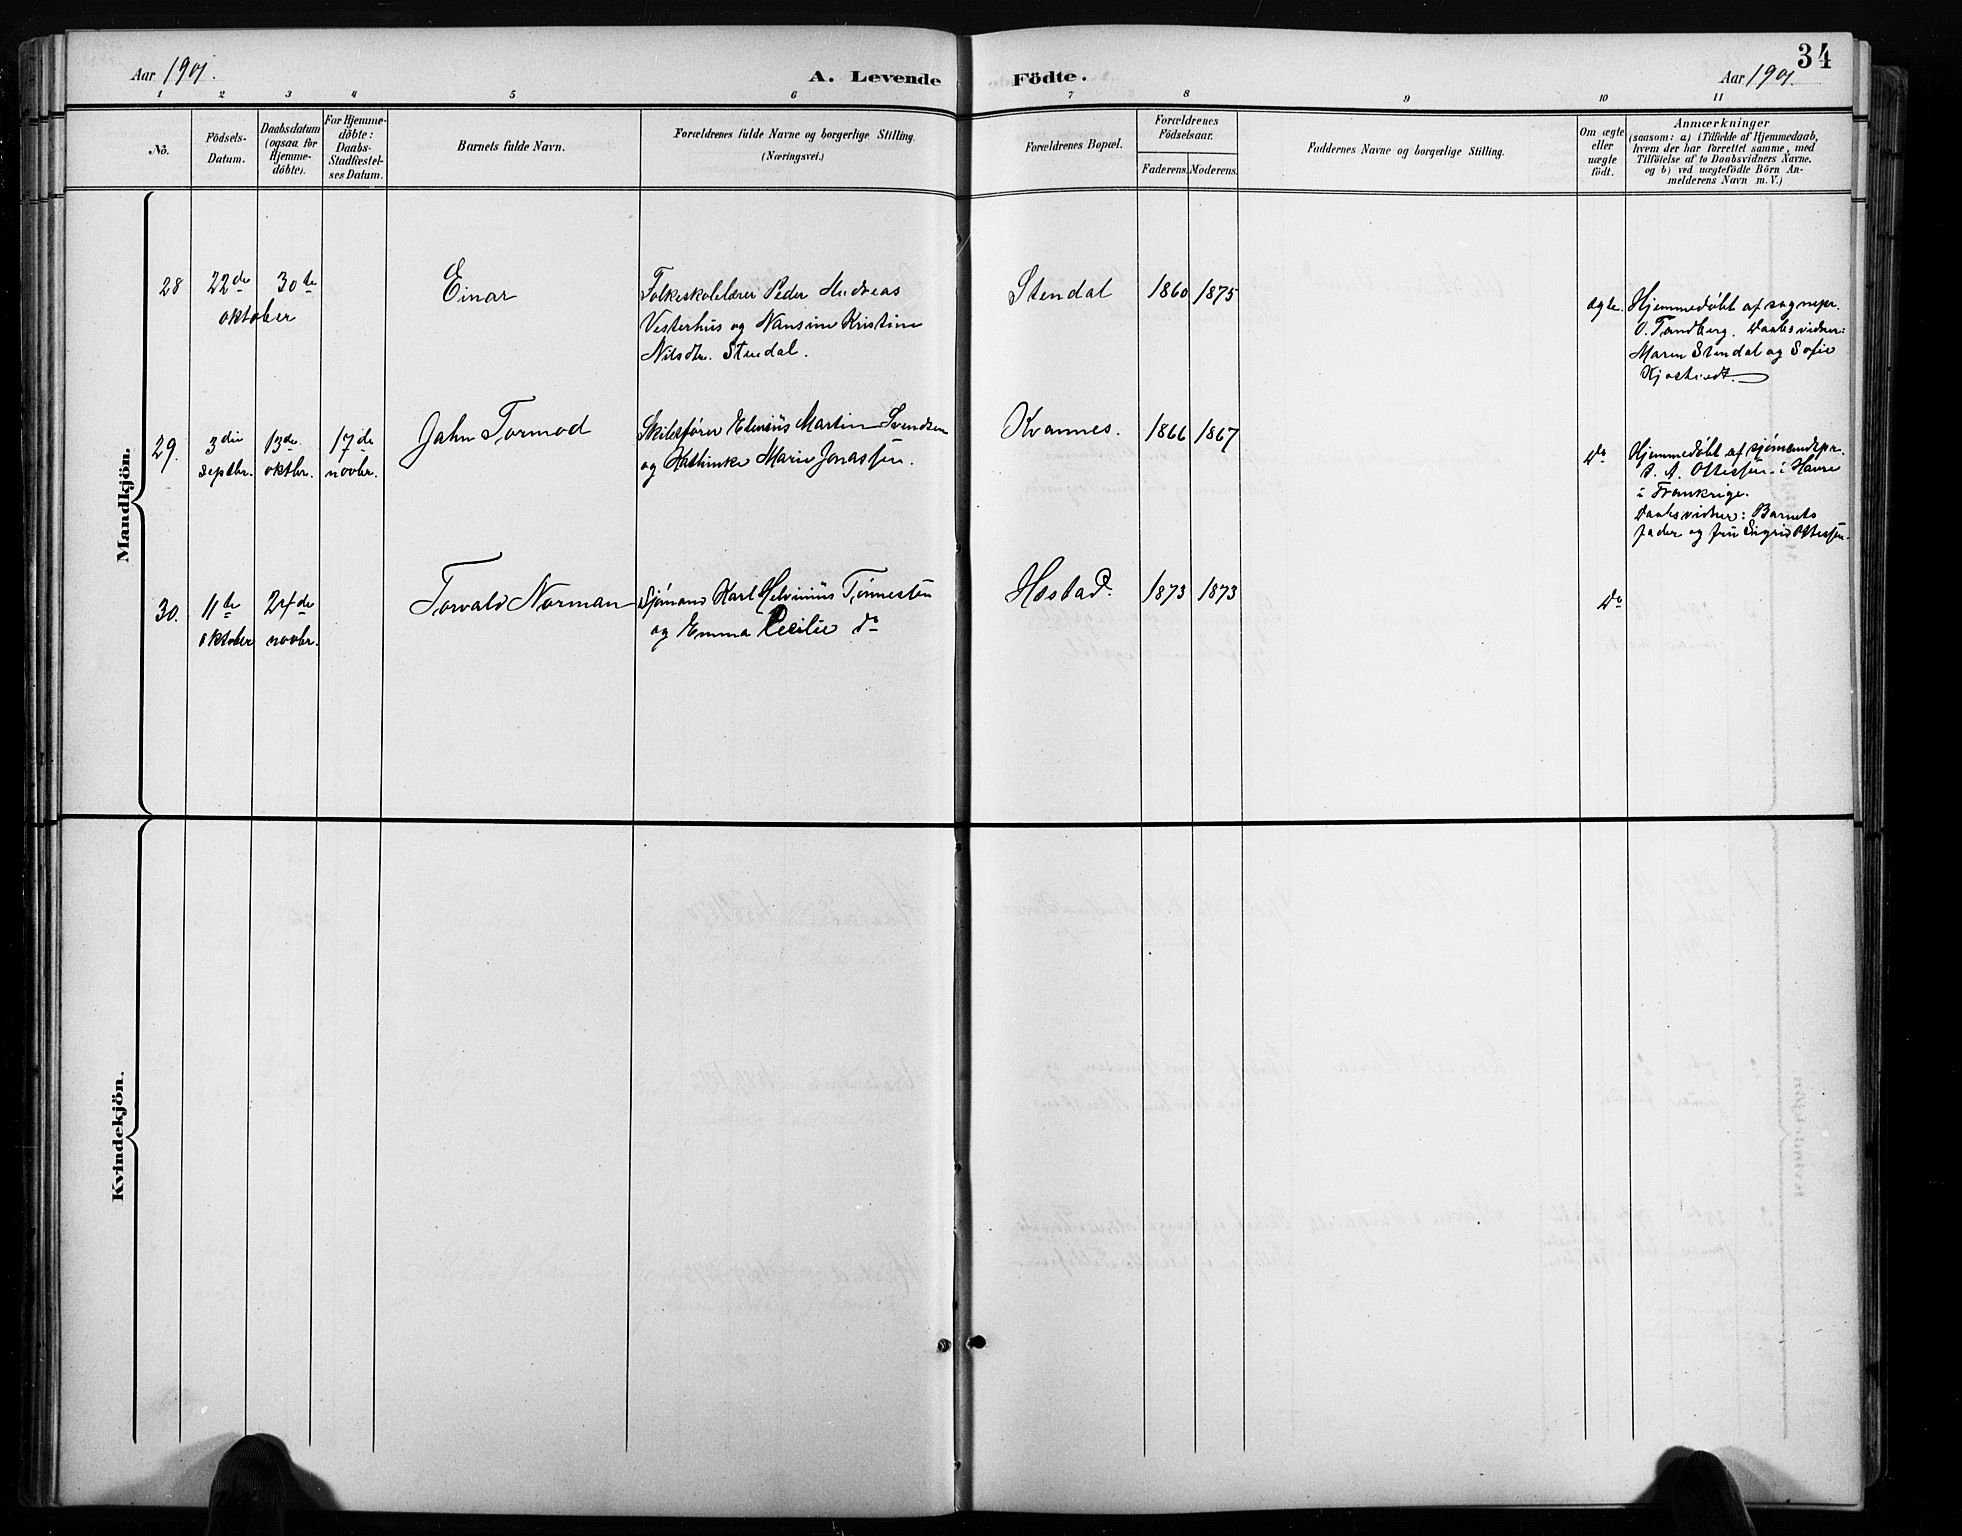 34
Aar 1901.
A. Levende
Födte.
Aar 1901.
1 2 3 4 5 6 7 8 9 10 11
No.
Födsels-
Datum.
Daabsdatum
(ogsaa for
Hjemme-
döbte).
For Hjemme-
döbte:
Daabs-
Stadfæstel-
ses Datum.
Barnets fulde Navn.
Forældrenes fulde Navne og borgerlige Stilling.
(Næringsvei.)
Forældrenes Bopæl.
Forældrenes
Födselsaar.
Faderens.
Moderens.
Faddernes Navne og borgerlige Stilling.
Om ægte
eller
uægte
født.
Anmærkninger
(saasom: a) i Tilfælde af Hjemmedaab,
hvem der har forrettet samme, med
Tilföielse af to Daabsvidners Navne,
og b) ved uægtefödte Börn An-
melderens Navn m. V.)
Mandkjön.
28
22de
oktober
30te
Einar
Folkeskolelærer Peder Andreas
Vesterhus og Nansine Kristine
Nilsdtr. Stendal.
Stendal
1860
1875
ægte.
Hjemmedøbt af sognepr.
O. Tandberg. Daabsvidner:
Maren Stendal og Sofie
29.
3die
septbr.
13de
oktbr.
17de
novbr.
Jahn Tormod
Skibsfører Martin Svendsen
og Kathinke Marie Jonassen.
Kvannes.
1866
1867
Do
Hjemmedøbt af sjømandspr.
A. Ottesen i Havre
i Frankrige.
Daabsvidner: Barnets
fader og fru Sigrid Ottesen.
30.
11te
oktober
24de
novbr.
Torvald Norman
Sjømand Karl Helvinius Tønnesen
og Emma Cecilie do
Hæstad.
1873
1873
Do
Kvindekjön.